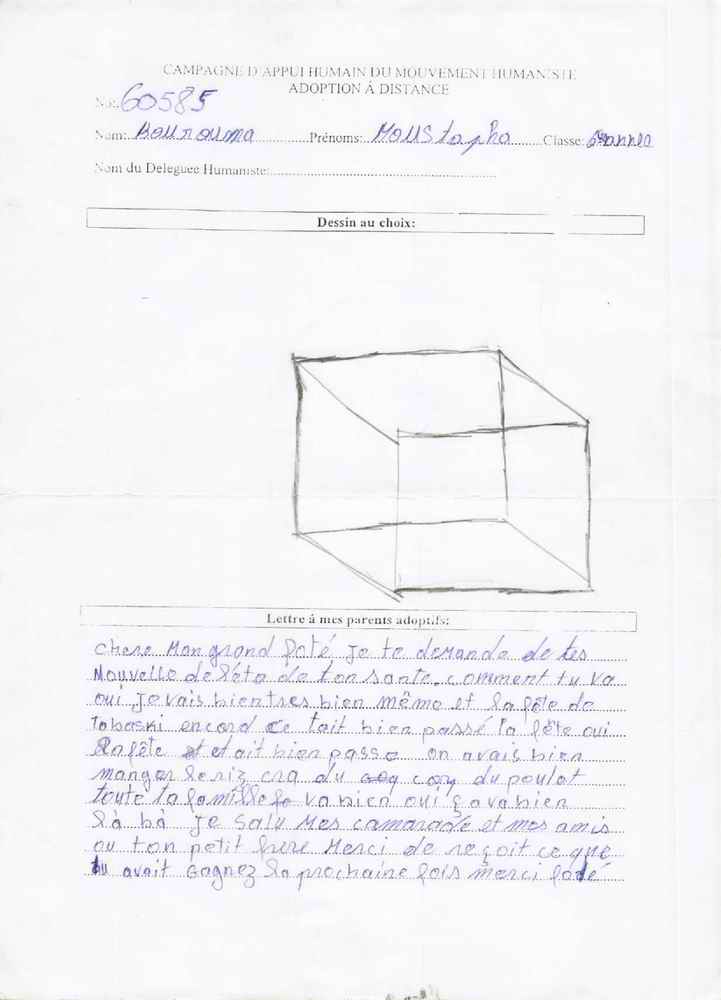 CAMPAGNE D'APPUI HUMAIN DU MOUVEMENT HUMANISTE
ADOPTION À DISTANCE
N.R. 60585
Nom: Bourouma Prénoms: Moustapha Classe: 6èannéé
Nom du Deleguee Humaniste:
Dessin au choix:
Lettre á mes parents adoptifs:
chere Mon grand foté je te demande de tes
Nouvelle de l'éta de ton sante. comment tu va
oui je vais bientres bien même et la fête de
Tabaski encord ce tait bien passé la fête oui
la fête etait bien passe on avais bien
manger le riz cra du coq du poulet
toute ta famille va bien oui ça va bien
là bà je salu mes camarade et mes amis
ou ton petit frere Merci de reçoit ce que
tu avait Gagnez la prochaine fois merci foté